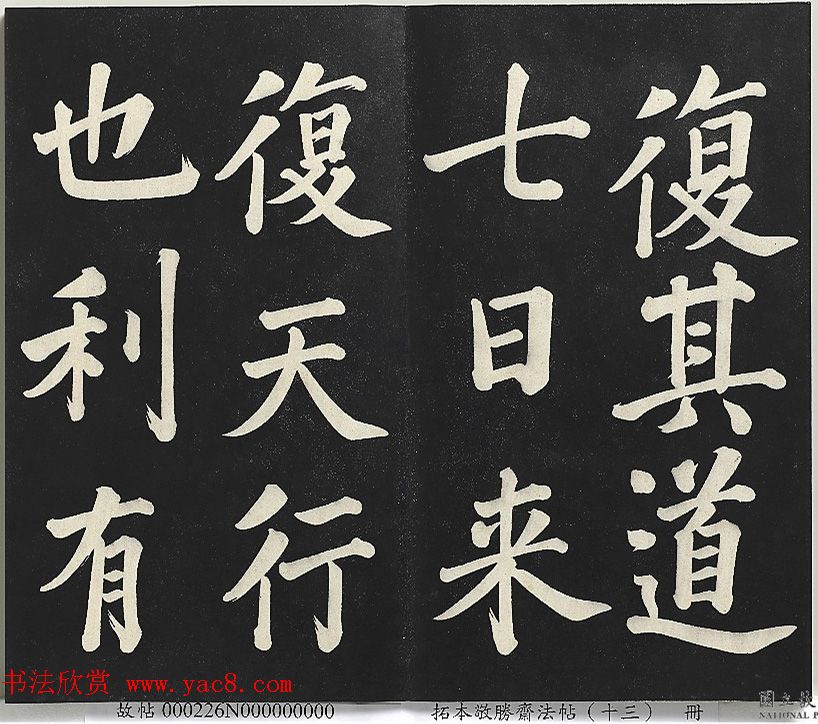 復其道
七日来
復天行
也利有
书法欣赏 www.yac8.com
故帖 000226N000000000 拓本敬勝齋法帖（十三） 冊
NATIONAL P